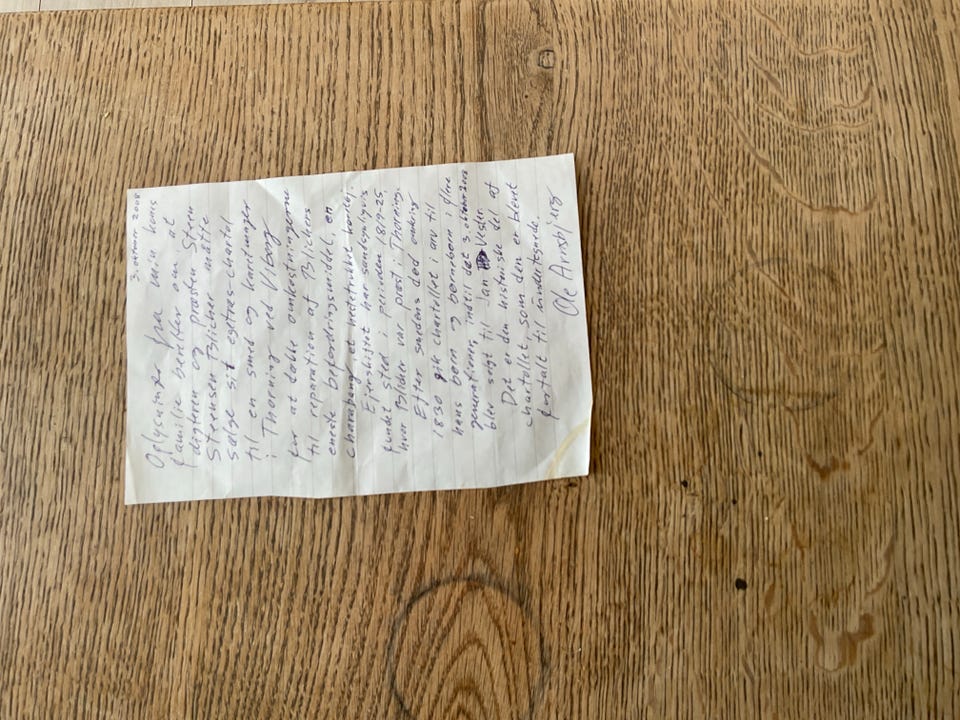 3. oktober 2008
Oplysninger fra min kones
familie beretter om at
digteren og præsten Steen
Steensen Blicher måtte
sælge sit egetræs-chartol
til en smed og handsmager
i Thorning ved Viborg
for at dække omkostningerne
til reparation af Blichers
eneste befordringsmiddel, en
charabanq, et hestetrukket køretøj.
Ejerskiftet har sandsynligvis
fundet sted i perioden 1819-25,
hvor Blicher var præst i Thorning.
Efter smedens død omkring
1830 gik chartollet i arv til
hans børn og børnebørn i flere
generationer, indtil det 3. oktober 2008
blev solgt til Jan Vester.
Det er den historiske del af
chartollet, som den er blevet
fortalt til undertegnede.
Ole